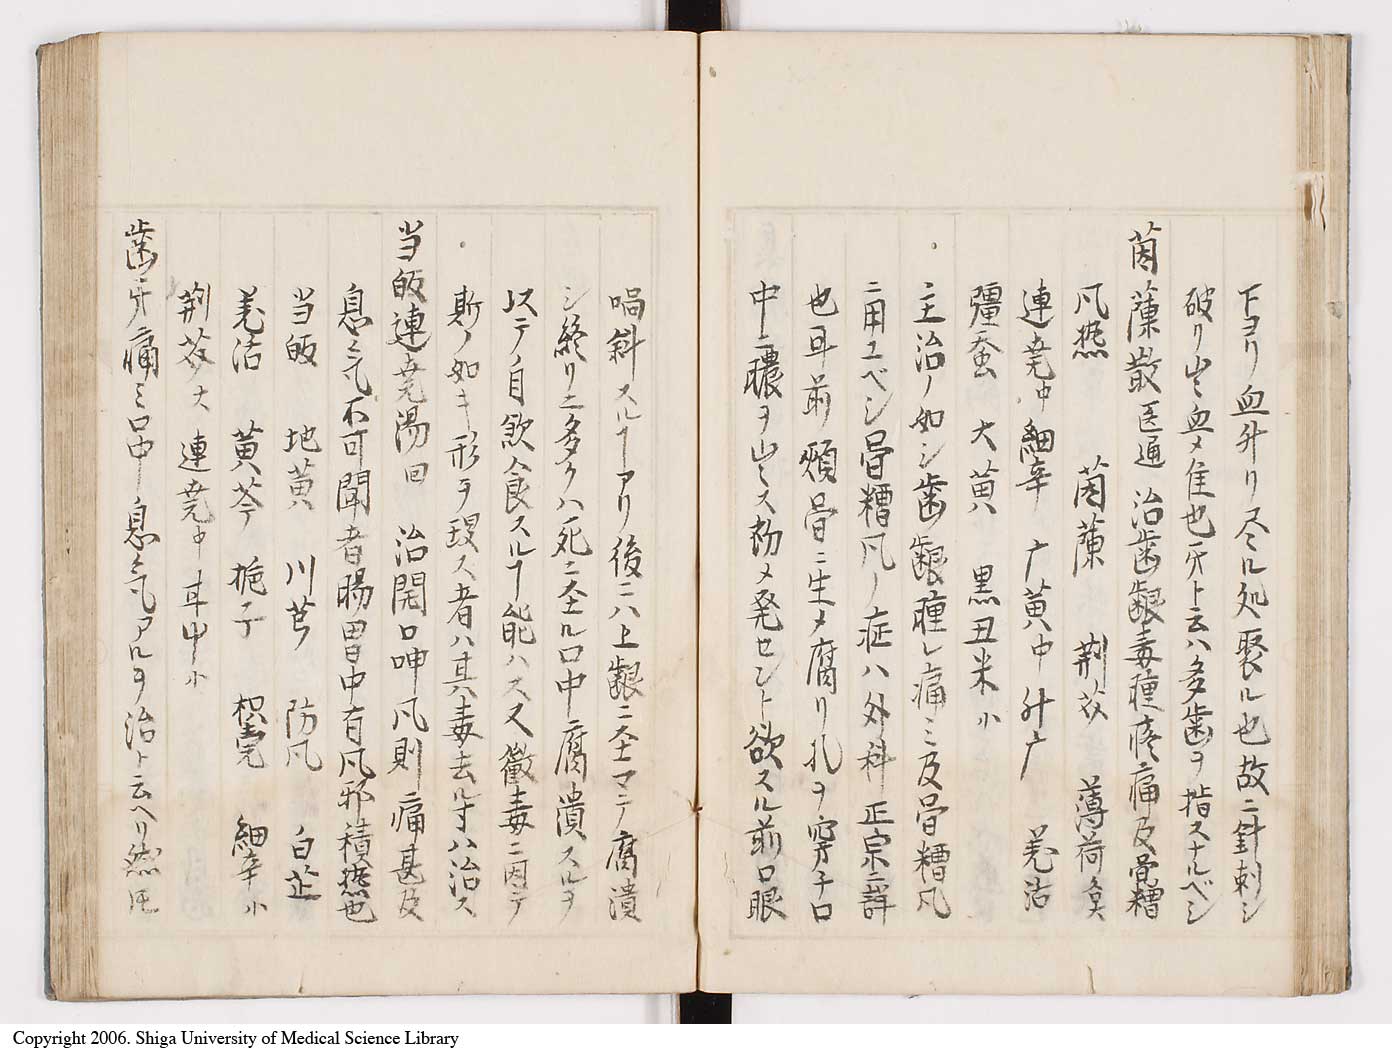 下ヨリ血升リ尽ル処聚ル也故ニ針刺シ
破リ出シ血メ佳也牙ト云ハ多歯ヲ指スナルベシ
茵蔯散 医通 治歯齦毒腫疼痛及骨糟
凡熱 茵蔯 荆芥 薄荷
連堯中 細辛 广黄中 升广 羌活
殭蚕 大黄 黒丑米小
主治ノ如シ歯齦腫レ痛ミ及骨糟凡
ニ用ユベシ骨糟凡ノ症ハ外科正宗ニ詳
也耳前頬骨ニ生メ腐リ孔ヲ穿チ口
中ニ膿ヲ出ス初メ発セント欲スル前口眼
喎斜スルヿアリ後ニハ上齦ニ至マテ腐潰
シ終リニ多クハ死ニ至ル口中腐潰スルヲ
以テノ自飲食スルヿ能ハス又黴毒ニ因テ
斯ノ如キ形ヲ現ス者ハ其毒去ル寸ハ治ス
当皈連堯湯 回 治開口呻凡則痛甚及
息気不可聞者腸胃中有凡邪積熱也
当皈 地黄 川芎 防凡 白芷
羌活 黄芩 梔子 枳壳 細辛小
荆芥大 連堯中 耳中小
歯牙痛ミ口中息気アルヲ治ト云ヘリ然𪜈